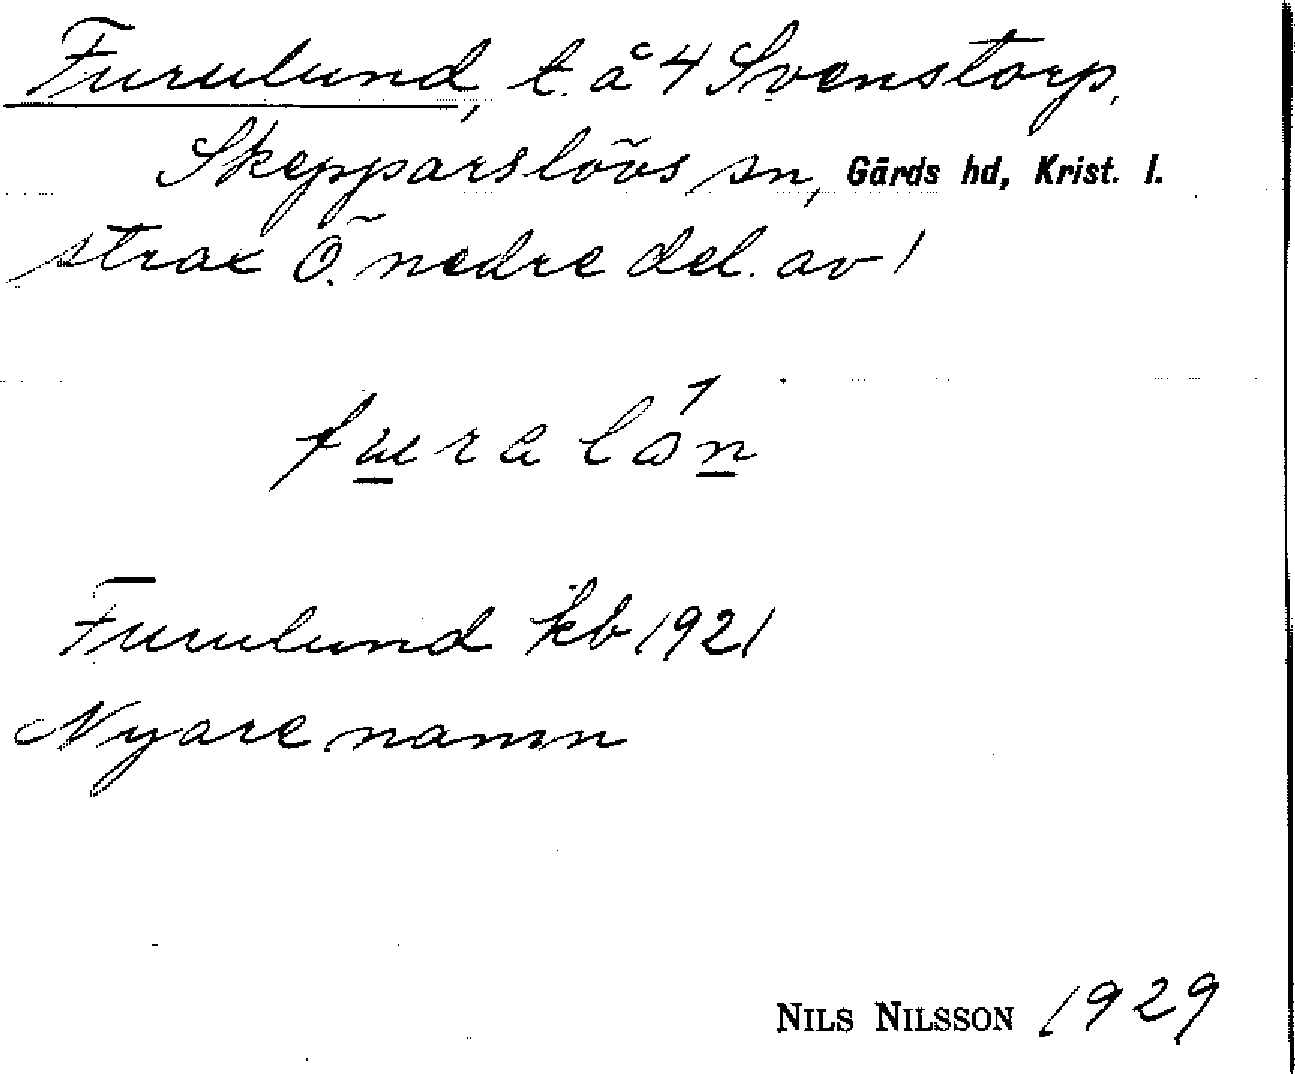 Furulund, t. å 4 Svenstorp,
Skepparslövs sn, Gärds hd, Krist. l.
strax Ö. nedre del. av 1
furalón
Furulund kb 1921
Nyare namn
NILS NILSSON 1929